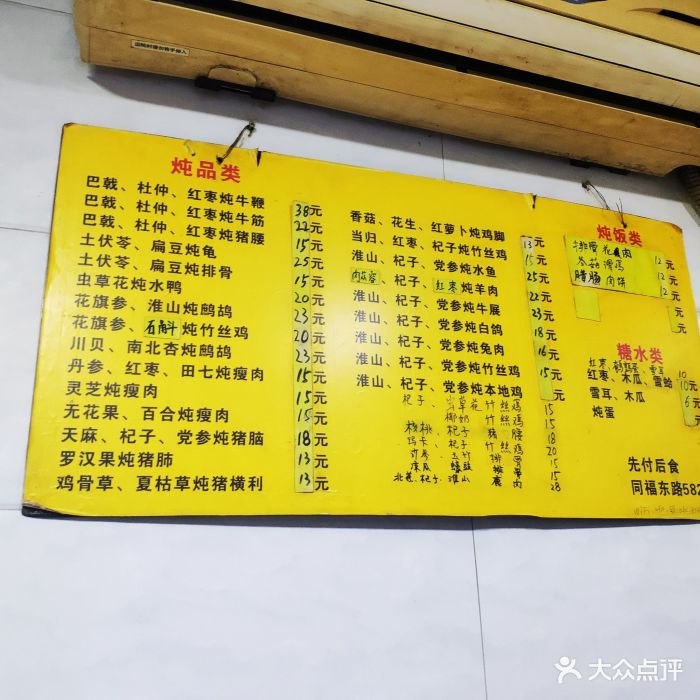 炖品类
巴戟、杜仲、红枣炖牛鞭 38元
巴戟、杜仲、红枣炖牛筋 22元
巴戟、杜仲、红枣炖猪腰 15元
土伏苓、扁豆炖龟 25元
土伏苓、扁豆炖排骨 15元
虫草花炖水鸭 20元
花旗参、淮山炖鹧鸪 23元
花旗参、石斛炖竹丝鸡 20元
川贝、南北杏炖鹧鸪 23元
丹参、红枣、田七炖瘦肉 15元
灵芝炖瘦肉 15元
无花果、百合炖瘦肉 15元
天麻、杞子、党参炖猪脑 18元
罗汉果炖猪肺 13元
鸡骨草、夏枯草炖猪横利 13元
香菇、花生、红萝卜炖鸡脚 13元
当归、红枣、杞子炖竹丝鸡 15元
淮山、杞子、党参炖水鱼 25元
杞子、红枣炖羊肉 22元
淮山、杞子、党参炖牛展 23元
淮山、杞子、党参炖白鸽 18元
淮山、杞子、党参炖兔肉 16元
淮山、杞子、党参炖竹丝鸡 15元
淮山、杞子、党参炖本地鸡 元
杞子、虫草花竹丝鸡 15
椰子竹丝鸡 15
核桃、杞子猪腰 18
玛卡、杞子竹丝鸡 20
15
15
北芪、杞子、淮山 鹿肉 28
炖饭类
排骨花肉 12元
冬菇滑鸡 12元
腊肠肉饼 12元
元
糖水类
红枣、鹌鹑蛋、雪耳 10
红枣、木瓜、雪蛤 10元
雪耳、木瓜 6元
炖蛋 元
先付后食
同福东路582
大众点评